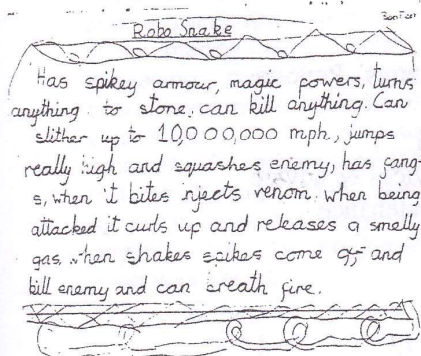 Robo Snake
Has spikey armour, magic powers, turns
anything to stone, can kill anything. Can
slither up to 10,000,000 mph, jumps
really high and squashes enemy, has fang-
s, when it bites injects venom. when being
attacked it curls up and releases a smelly
gas, when shakes spikes come off and
kill enemy and can breath fire.